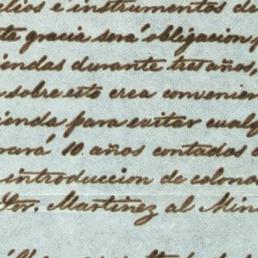 elios é instrumentos de
ta gracia será obligacion
iendas durante tres años,
sobre esto crea convenien
ienda para evitar cualq
cará 10 años contados
introduccion de colono
Sor. Martinez al Min